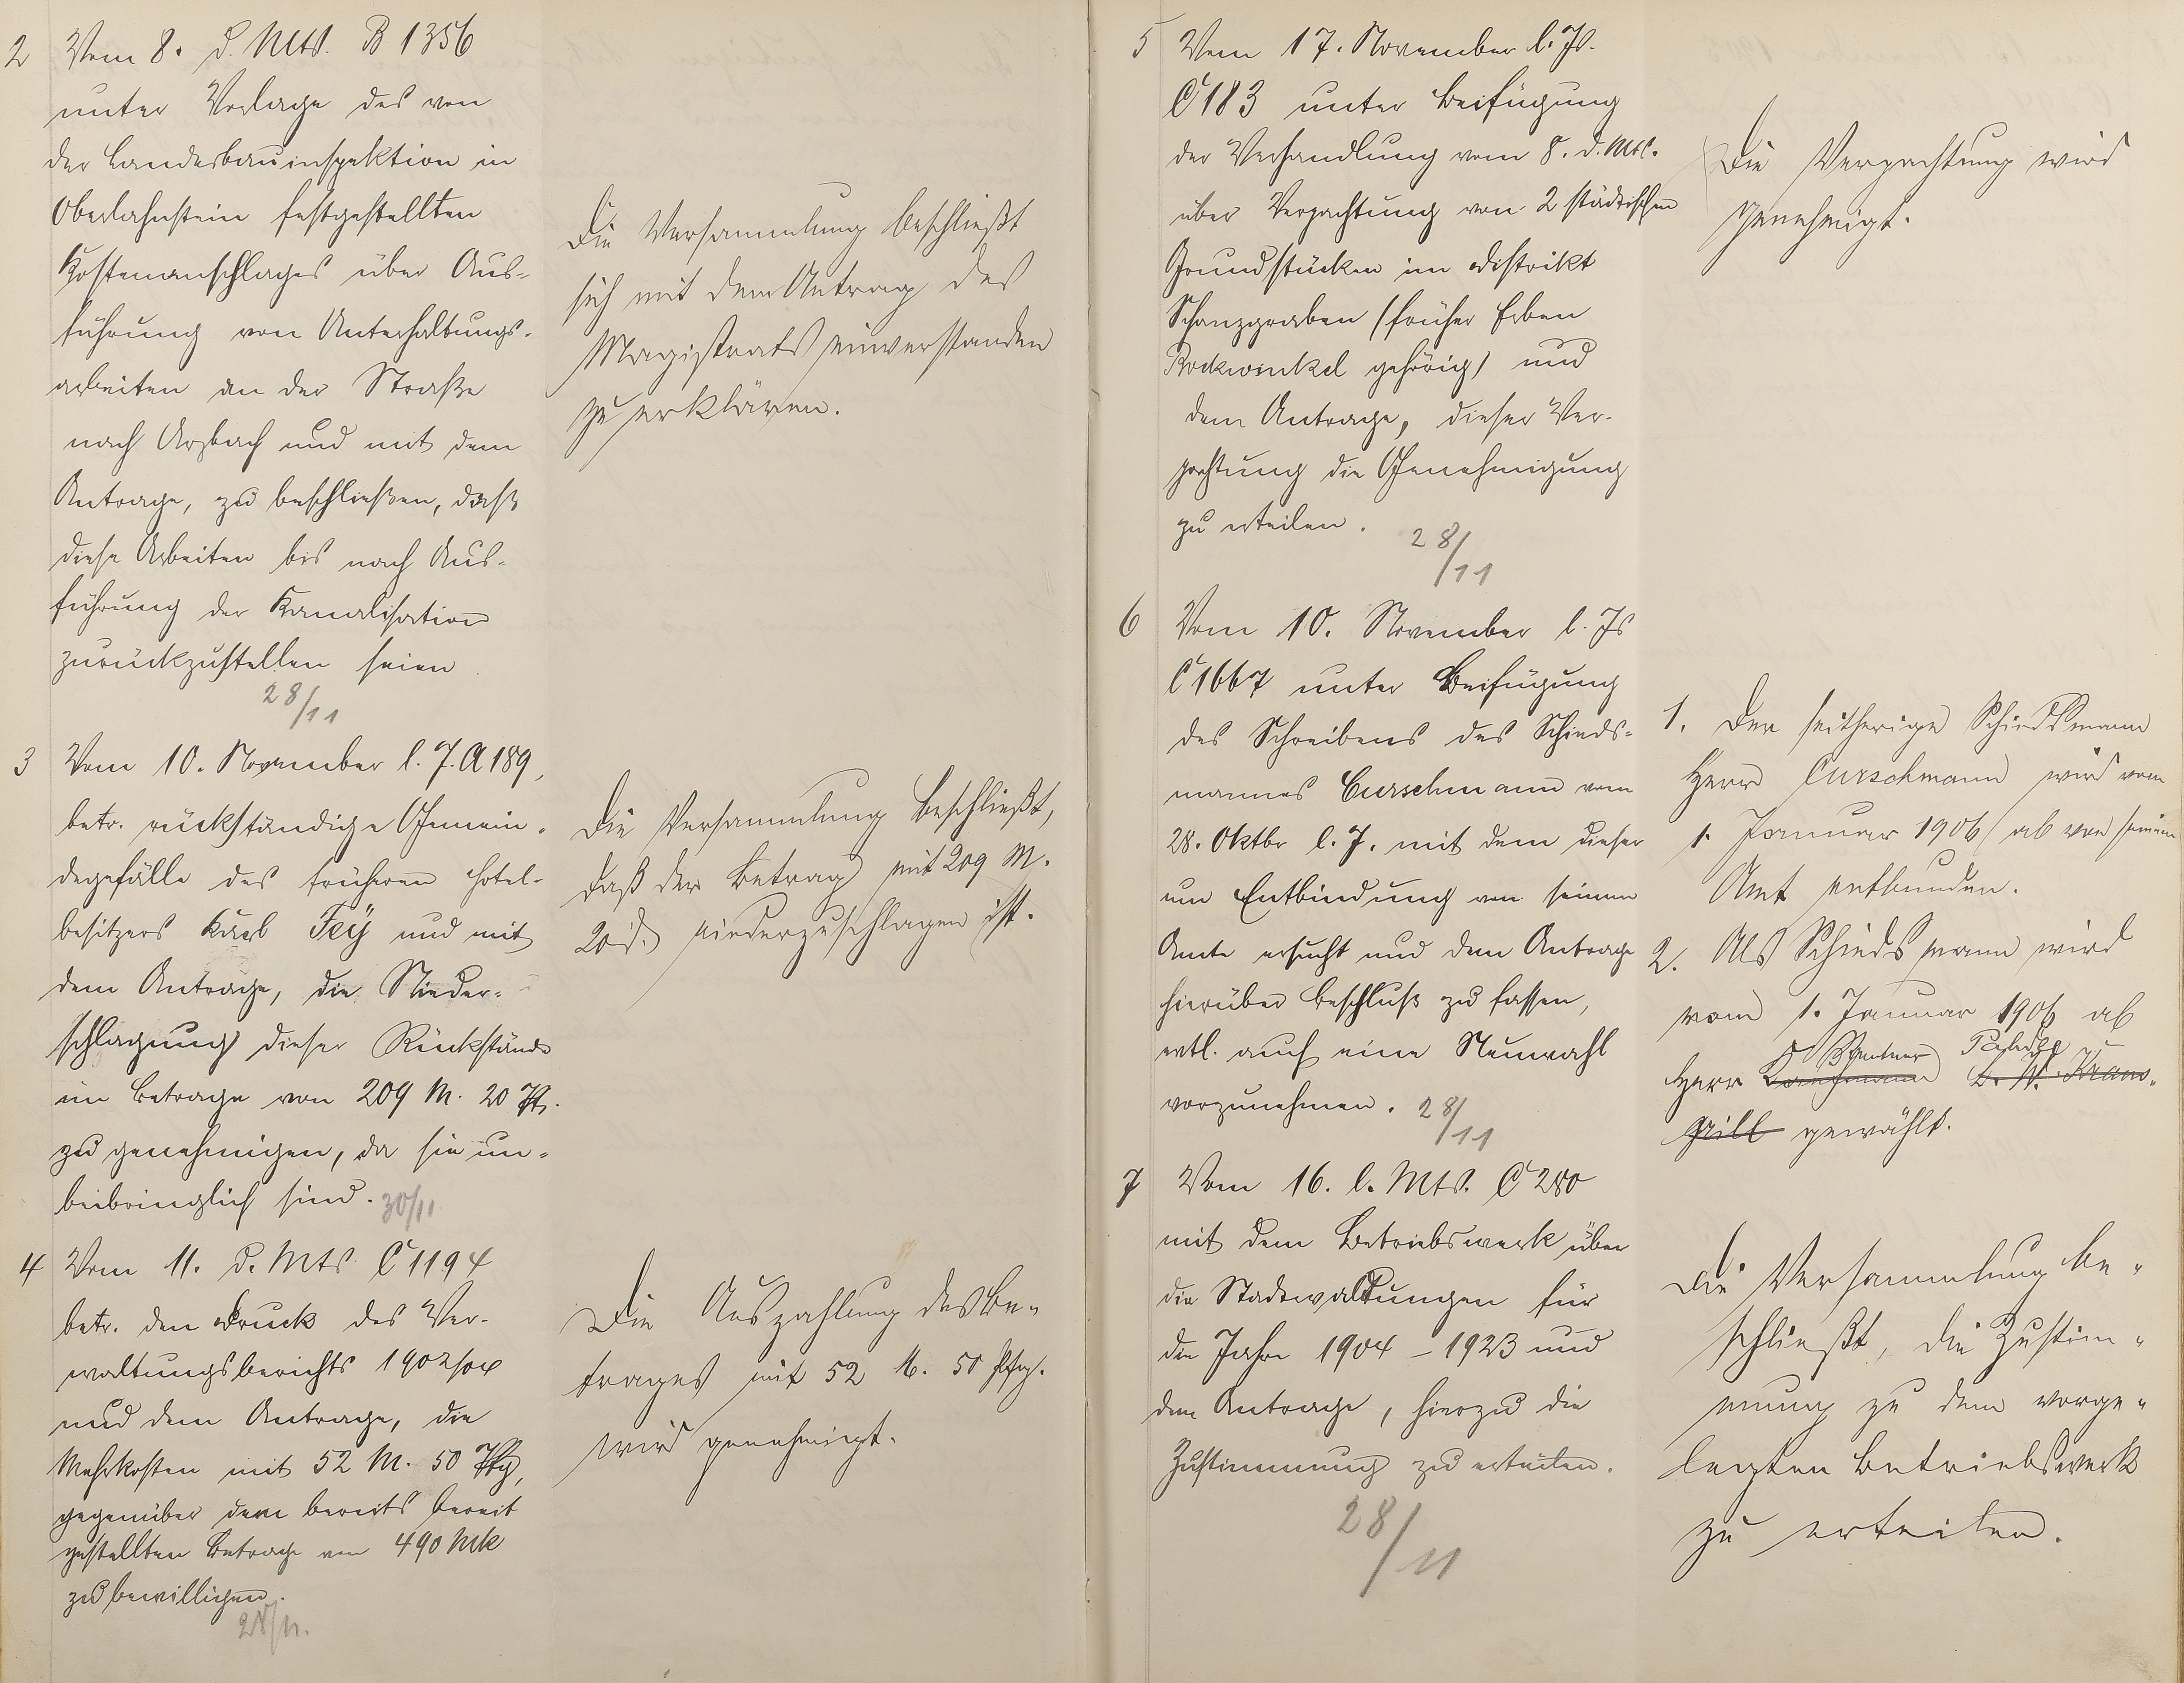 2 Vom 8. d. Mts. B 1356
unter Vorlage des von
der Landesbauinspektion in
Oberlahnstein festgestellten
Kostenanschlages über Aus-
führung von Unterhaltungs-
arbeiten an der Straße
nach Arzbach und mit dem
Antrage, zu beschließen, daß
diese Arbeiten bis nach Aus-
führung der Kanalisation
zurückzustellen seien
28/11
Die Versammlung beschließt
sich mit dem Antrag des
Magistrats einverstanden
zu erklären.
3 Vom 10. November l. J. A 189,
betr. rückständige Gemein-
degefälle des früheren Hotel-
besitzers Karl Feÿ und mit
dem Antrage, die Nieder-
schlagung dieser Rückstände
im Betrage von 209 M. 20 Pf.
zu genehmigen, da sie un-
beibringlich sind. 30/11
Die Versammlung beschließt,
daß der Betrag mit 209 M.
20 niederzuschlagen ist.
4 Vom 11. d. Mts. C 1194
betr. den Druck des Ver-
waltungsberichts 1902/04
und dem Antrage, die
Mehrkosten mit 52 M. 50 Pfg,
gegenüber dem bereits bereit
gestellten Betrage von 490 Mk
zu bewilligen.
28/11.
Die Auszahlung des Be-
trages mit 52 M. 50 Pfg.
wird genehmigt.
5 Vom 17. November l. Js.
C 183 unter Beifügung
der Verhandlung vom 8. d. Mts.
über Verpachtung von 2 städtischen
Grundstücken im Distrikt
Schanzgraben (früher Erben
Rockwinkel gehörig) und
dem Antrage, dieser Ver-
pachtung die Genehmigung
zu erteilen.
28/11
Die Verpachtung wird
genehmigt.
6 Vom 10. November l. Js
C 1667 unter Beifügung
des Schreibens des Schieds-
mannes Curschmann vom
28. Oktbr l. J. mit dem dieser
um Entbindung von seinem
Amte ersucht und dem Antrage
hierüber Beschluß zu fassen,
evtl. auch eine Neuwahl
vorzunehmen. 28/11
1. Der seitherige Schiedsmann
Herr Curschmann wird vom
1. Januar 1906 ab von seinem
Amt entbunden.
2. Als Schiedsmann wird
vom 1. Januar 1906 ab
Rentner
Herr Kaufmann
gewählt.
7 Vom 16. l. Mts. C 280
mit dem Betriebswerk über
die Stadtwaldungen für
die Jahre 1904 - 1923 und
dem Antrage, hierzu die
Zustimmung zu erteilen.
28/11
Die Versammlung be-
schließt, die Zustim-
mung zu dem vorge-
legten Betriebswerk
zu erteilen.